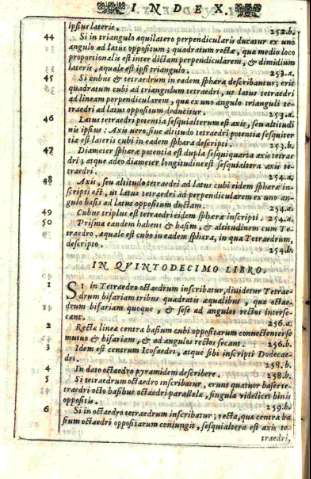 INDEX.
ipsius lateris. 252.b.
44 Si in triangulo æquilatero perpendicularis ducatur ex uno
angulo ad latus oppositum; quadratum rectæ, quæ medio loco
proportionalis est inter dictam perpendicularem, & dimidium
lateris, æquale est ipsi triangulo. 253.a.
45 Si cubus & tetraedrum in eadem sphæra describantur; erit
quadratum cubi ad triangulum tetraedri, ut latus tetraedri
ad lineam perpendicularem, quæ ex uno angulo trianguli te-
traedri ad latus oppositum deducitur. 253.a.
46 Latus tetraedri potentia sesquialterum est axis, seu altitudi
nis ipsius: Axis uero, siue altitudo tetraedri potentia sesquiter
tia est lateris cubi in eadem sphæra descripti. 253.b.
47 Diameter sphæræ potentia est dupla sesquiquarta axis tetrae
dri, atque adeo diameter longitudine est sesquialtera axis te-
traedri. 254.a.
48 Axis, seu altitudo tetraedri ad latus cubi eidem sphæræ in-
scripti est, ut latus tetraedri ad perpendicularem ex uno an-
gulo basis ad latus oppositum ductam. 254.a.
49 Cubus triplus est tetraedri eidem sphæræ inscripti. 254.a.
50 Prisma eandem habens & basim, & altitudinem cum Te-
traedro, æquale est cubo in eadem sphæra, in qua Tetraedrum,
descripto. 254.b.
IN QVINTODECIMO LIBRO.
1 Si in Tetraedro octaedrum inscribatur, diuidetur Tetrae-
drum bifariam tribus quadratis æqualibus, quæ octae-
drum bifariam quoque, & sese ad angulos rectos interse-
cant. 256.a.
2 Recta linea centra basium cubi oppositarum connectentes se
mutuo & bifariam, & ad angulos rectos secant. 256.b.
3 Idem est centrum Icosaedri, atque sibi inscripti Dodecae-
dri. 258.b.
4 In dato octaedro pyramidem describere. 258.b.
5 Si tetraedrum octaedro inscribatur, erunt quatuor bases te-
traedri octo basibus octaedri parallelæ, singulæ videlicet binis
oppositis. 259.b.
6 Si in octaedro tetraedrum inscribatur; recta, quæ centra ba
sium octaedri oppositarum coniungit, sesquialtera est axis te-
traedri,